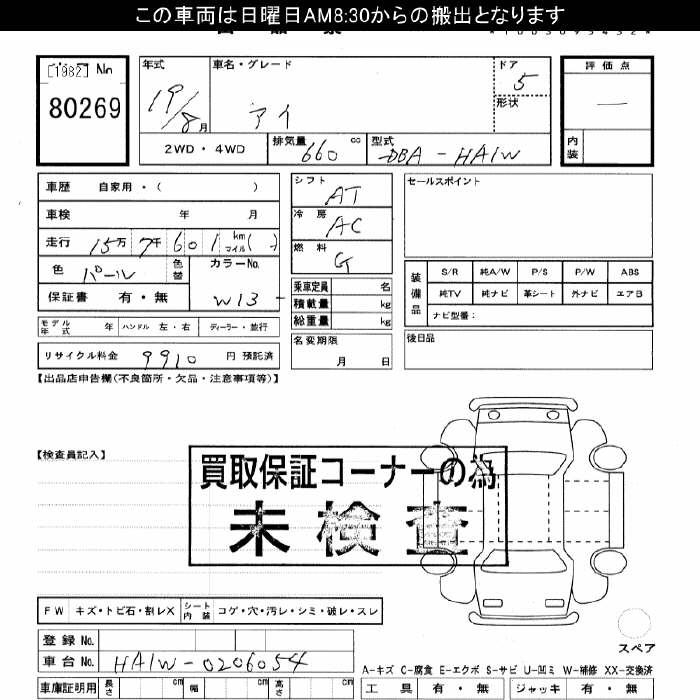 この車両は日曜日AM8:30からの搬出となります
[1982] No
80269
年式
19/8月
車名・グレード
アイ
ドア
5
形状
評価点
—
内装
2WD・4WD
排気量
660
cc
型式
DBA-HA1W
車歴 自家用・( )
車検 年 月
走行 15万7千601 km マイル( )
色 パール 色替
カラーNo.
W13
保証書 有・無
モデル年式 年 ハンドル 左・右 ディーラー・並行
リサイクル料金 9910 円 預託済
シフト
AT
冷房
AC
燃料
G
乗車定員 名
積載量 kg
総重量 kg
名変期限
月 日
セールスポイント
装備品
S/R 純A/W P/S P/W ABS
純TV 純ナビ 革シート 外ナビ エアB
ナビ型番:
後日品
【出品店申告欄(不良箇所・欠品・注意事項等)】
【検査員記入】
買取保証コーナーの為
未検査
FW キズ・トビ石・割レX シート内装 コゲ・穴・汚レ・シミ・破レ・スレ
登録 No.
車台 No. HA1W-0206054
車庫証明用 長さ cm 幅 cm 高さ cm
スペア
A-キズ C-腐食 E-エクボ S-サビ U-凹ミ W-補修 XX-交換済
工具 有・無 ジャッキ 有・無